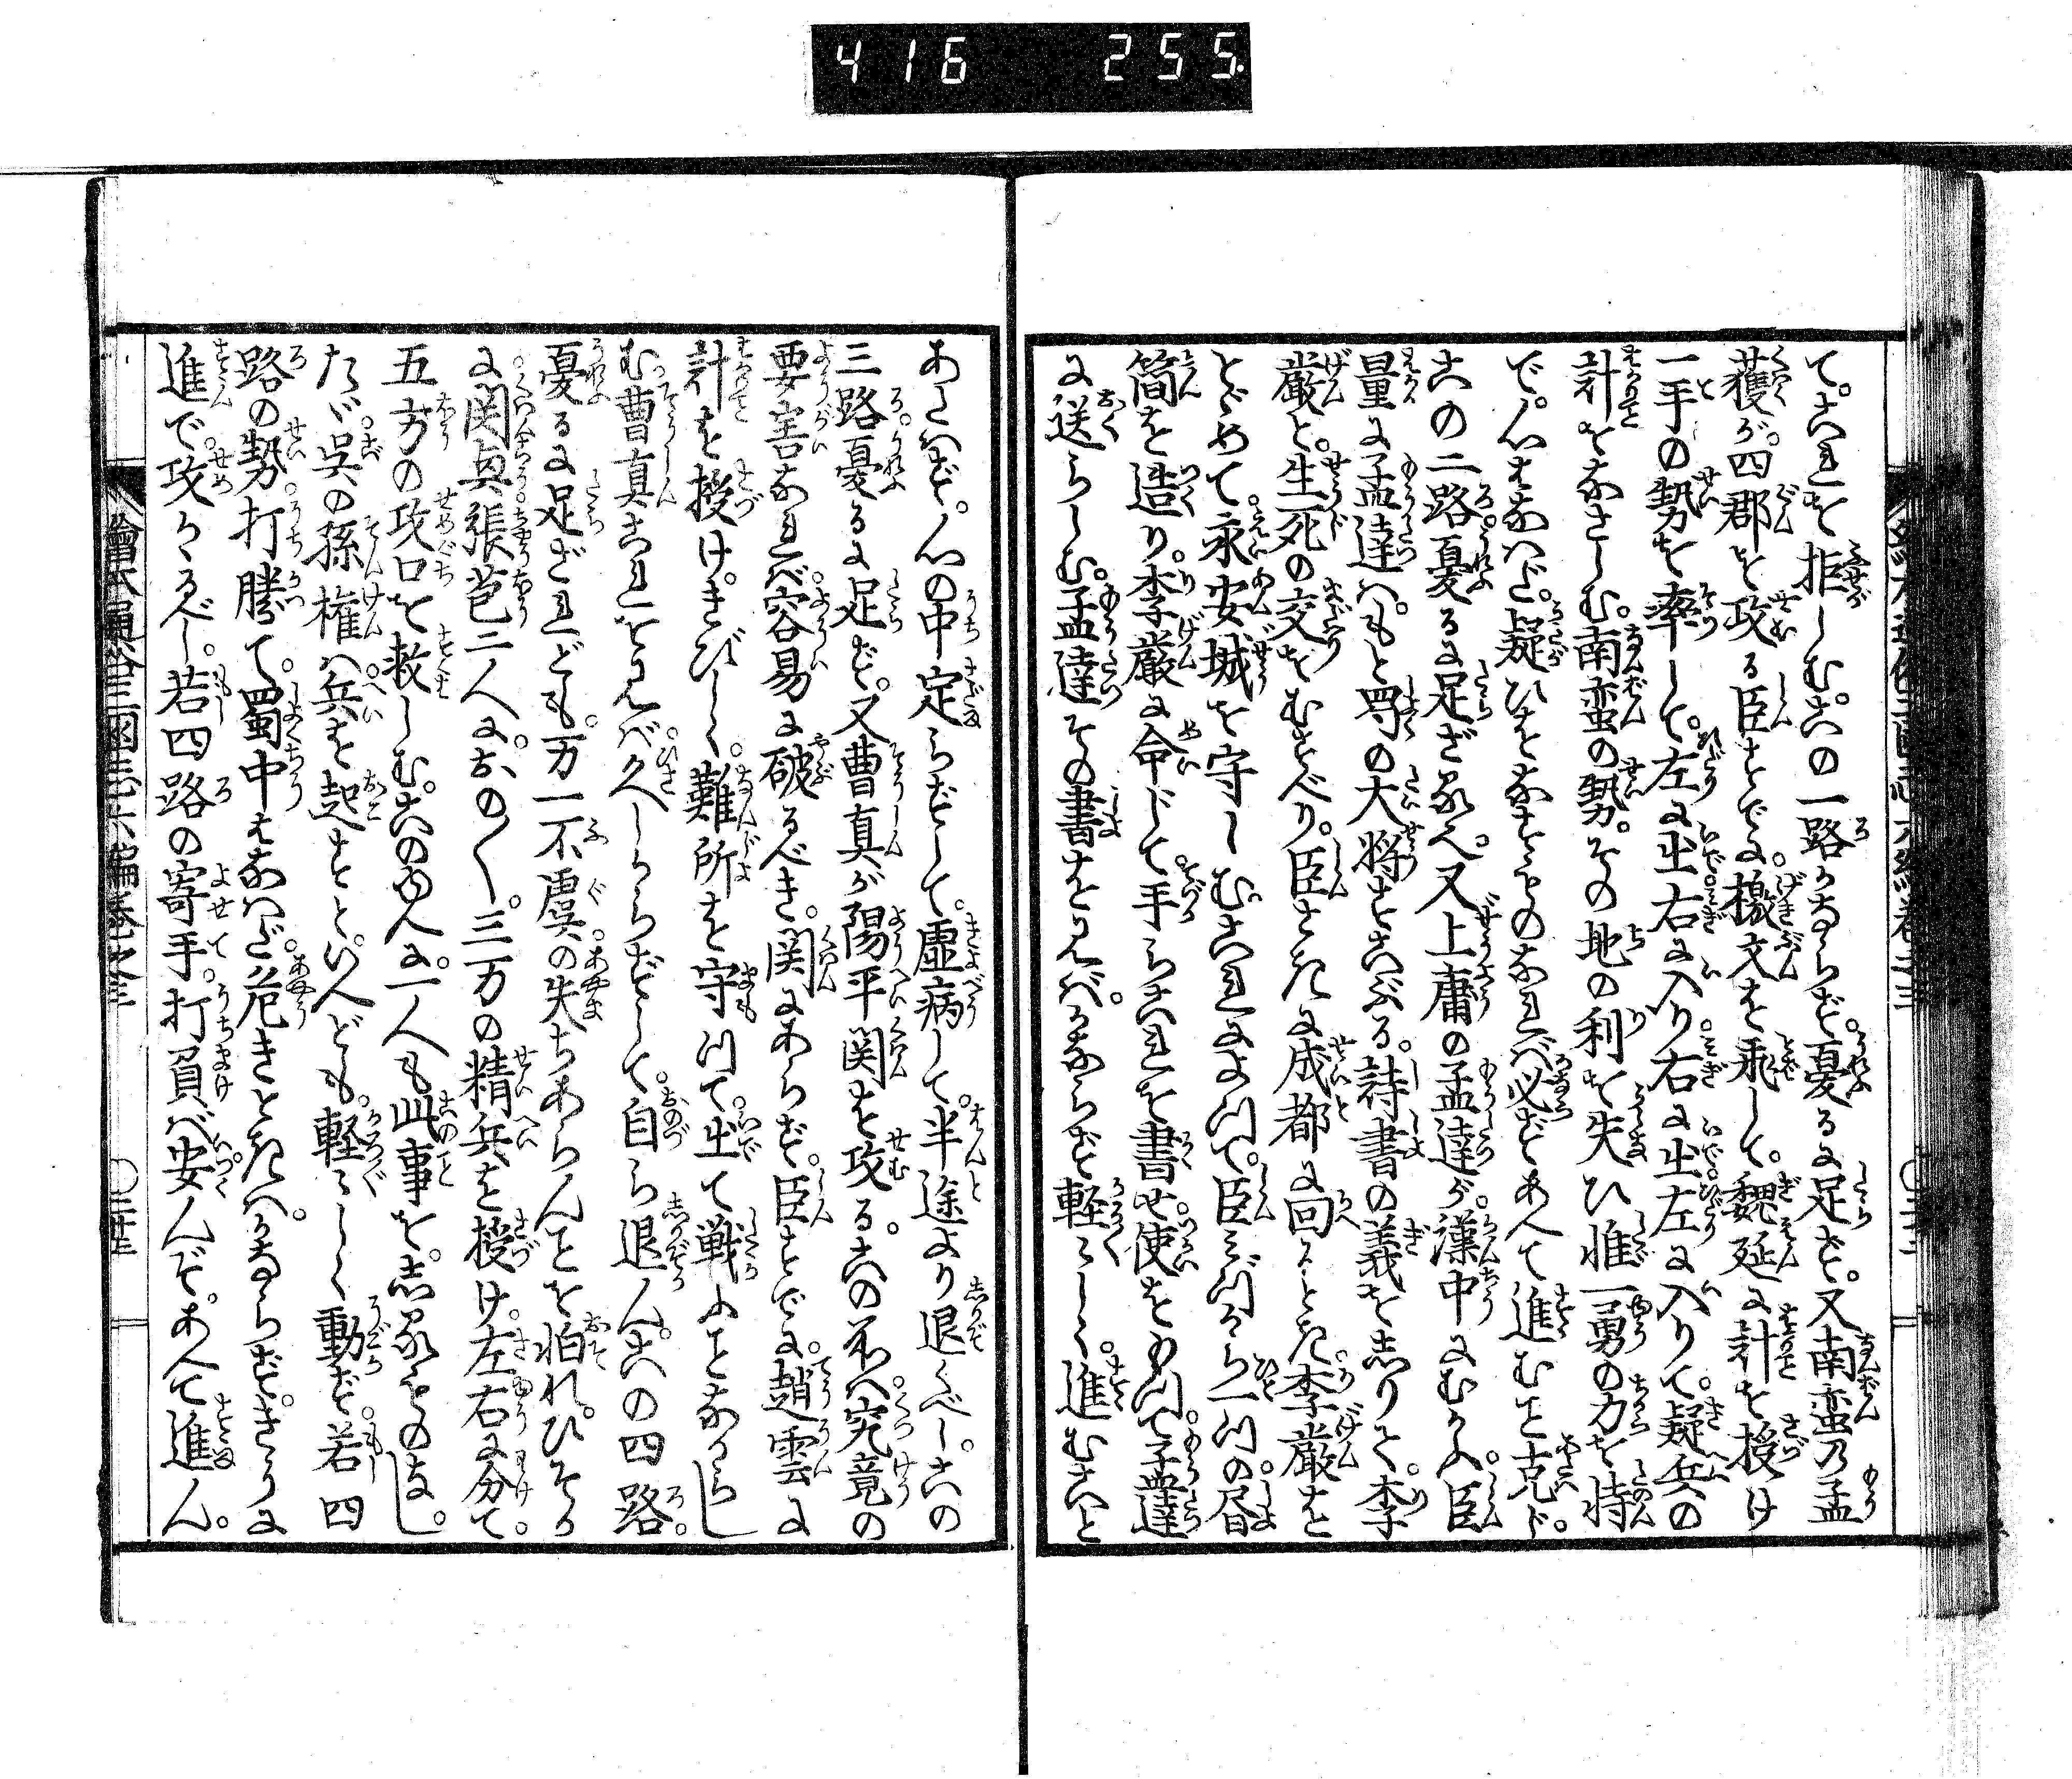 416 255
て。これを拒しむ。この一路かならず憂るに足ず。又南蛮乃孟
獲が四郡を攻る臣すでに檄文を飛して。魏延に計を授け
一手の勢を率して。左に出右に入り右に出左に入りて。疑兵の
計をなさしむ。南蛮の勢。その地の利を失ひ惟一勇の力を恃
で。心はなはだ疑ひをなすものなれば必ずあへて進むこと克ず。
この二路憂るに足ざるべし。又上庸の孟達が。漢中にむかふ。臣
量に孟達は。もと蜀の大将をこふる。詩書の義を志りて李
厳と。生死の交をむすべり。臣さきに成都に回るとき李厳を
とゞめて。永安城を守しむ。これによつて。臣みづから一つの書
簡を造り。李厳に命じて手らこれを書せ。使をもつて孟達
に送らしむ。孟達その書を見ば。かならず軽〻しく。進むこと
あたはず。心の中定らずして。虚病して。半途より退くべし。この
三路憂るに足ず。又曹真が陽平関を攻る。この所へ究竟の
要害なれば。容易に破るべき。関にあらず。臣すでに。趙雲に
計を授け。きびしく。難所を守つて。出て戦ふことなからし
む。曹真これを見ば久しからずして。自ら退ん。この四路。
憂るに足ざれども。万一不虞の失ちあらんことを怕れ。ひそか
に関興張苞二人に。おの〳〵。三万の精兵を授け。左右に分て。
五方の攻口を救しむ。このゆへに。一人も此事を。志るものなし。
たゞ。呉の孫権は。兵を起すといへども。軽〻しく動ず。若四
路の勢。打勝て。蜀中はなはだ。危きときは。かならず。きうに
進で。攻かゝるべし。若四路の寄手。打負ば安んぞ。あへて進ん。
繪本通俗三國志六編巻之三